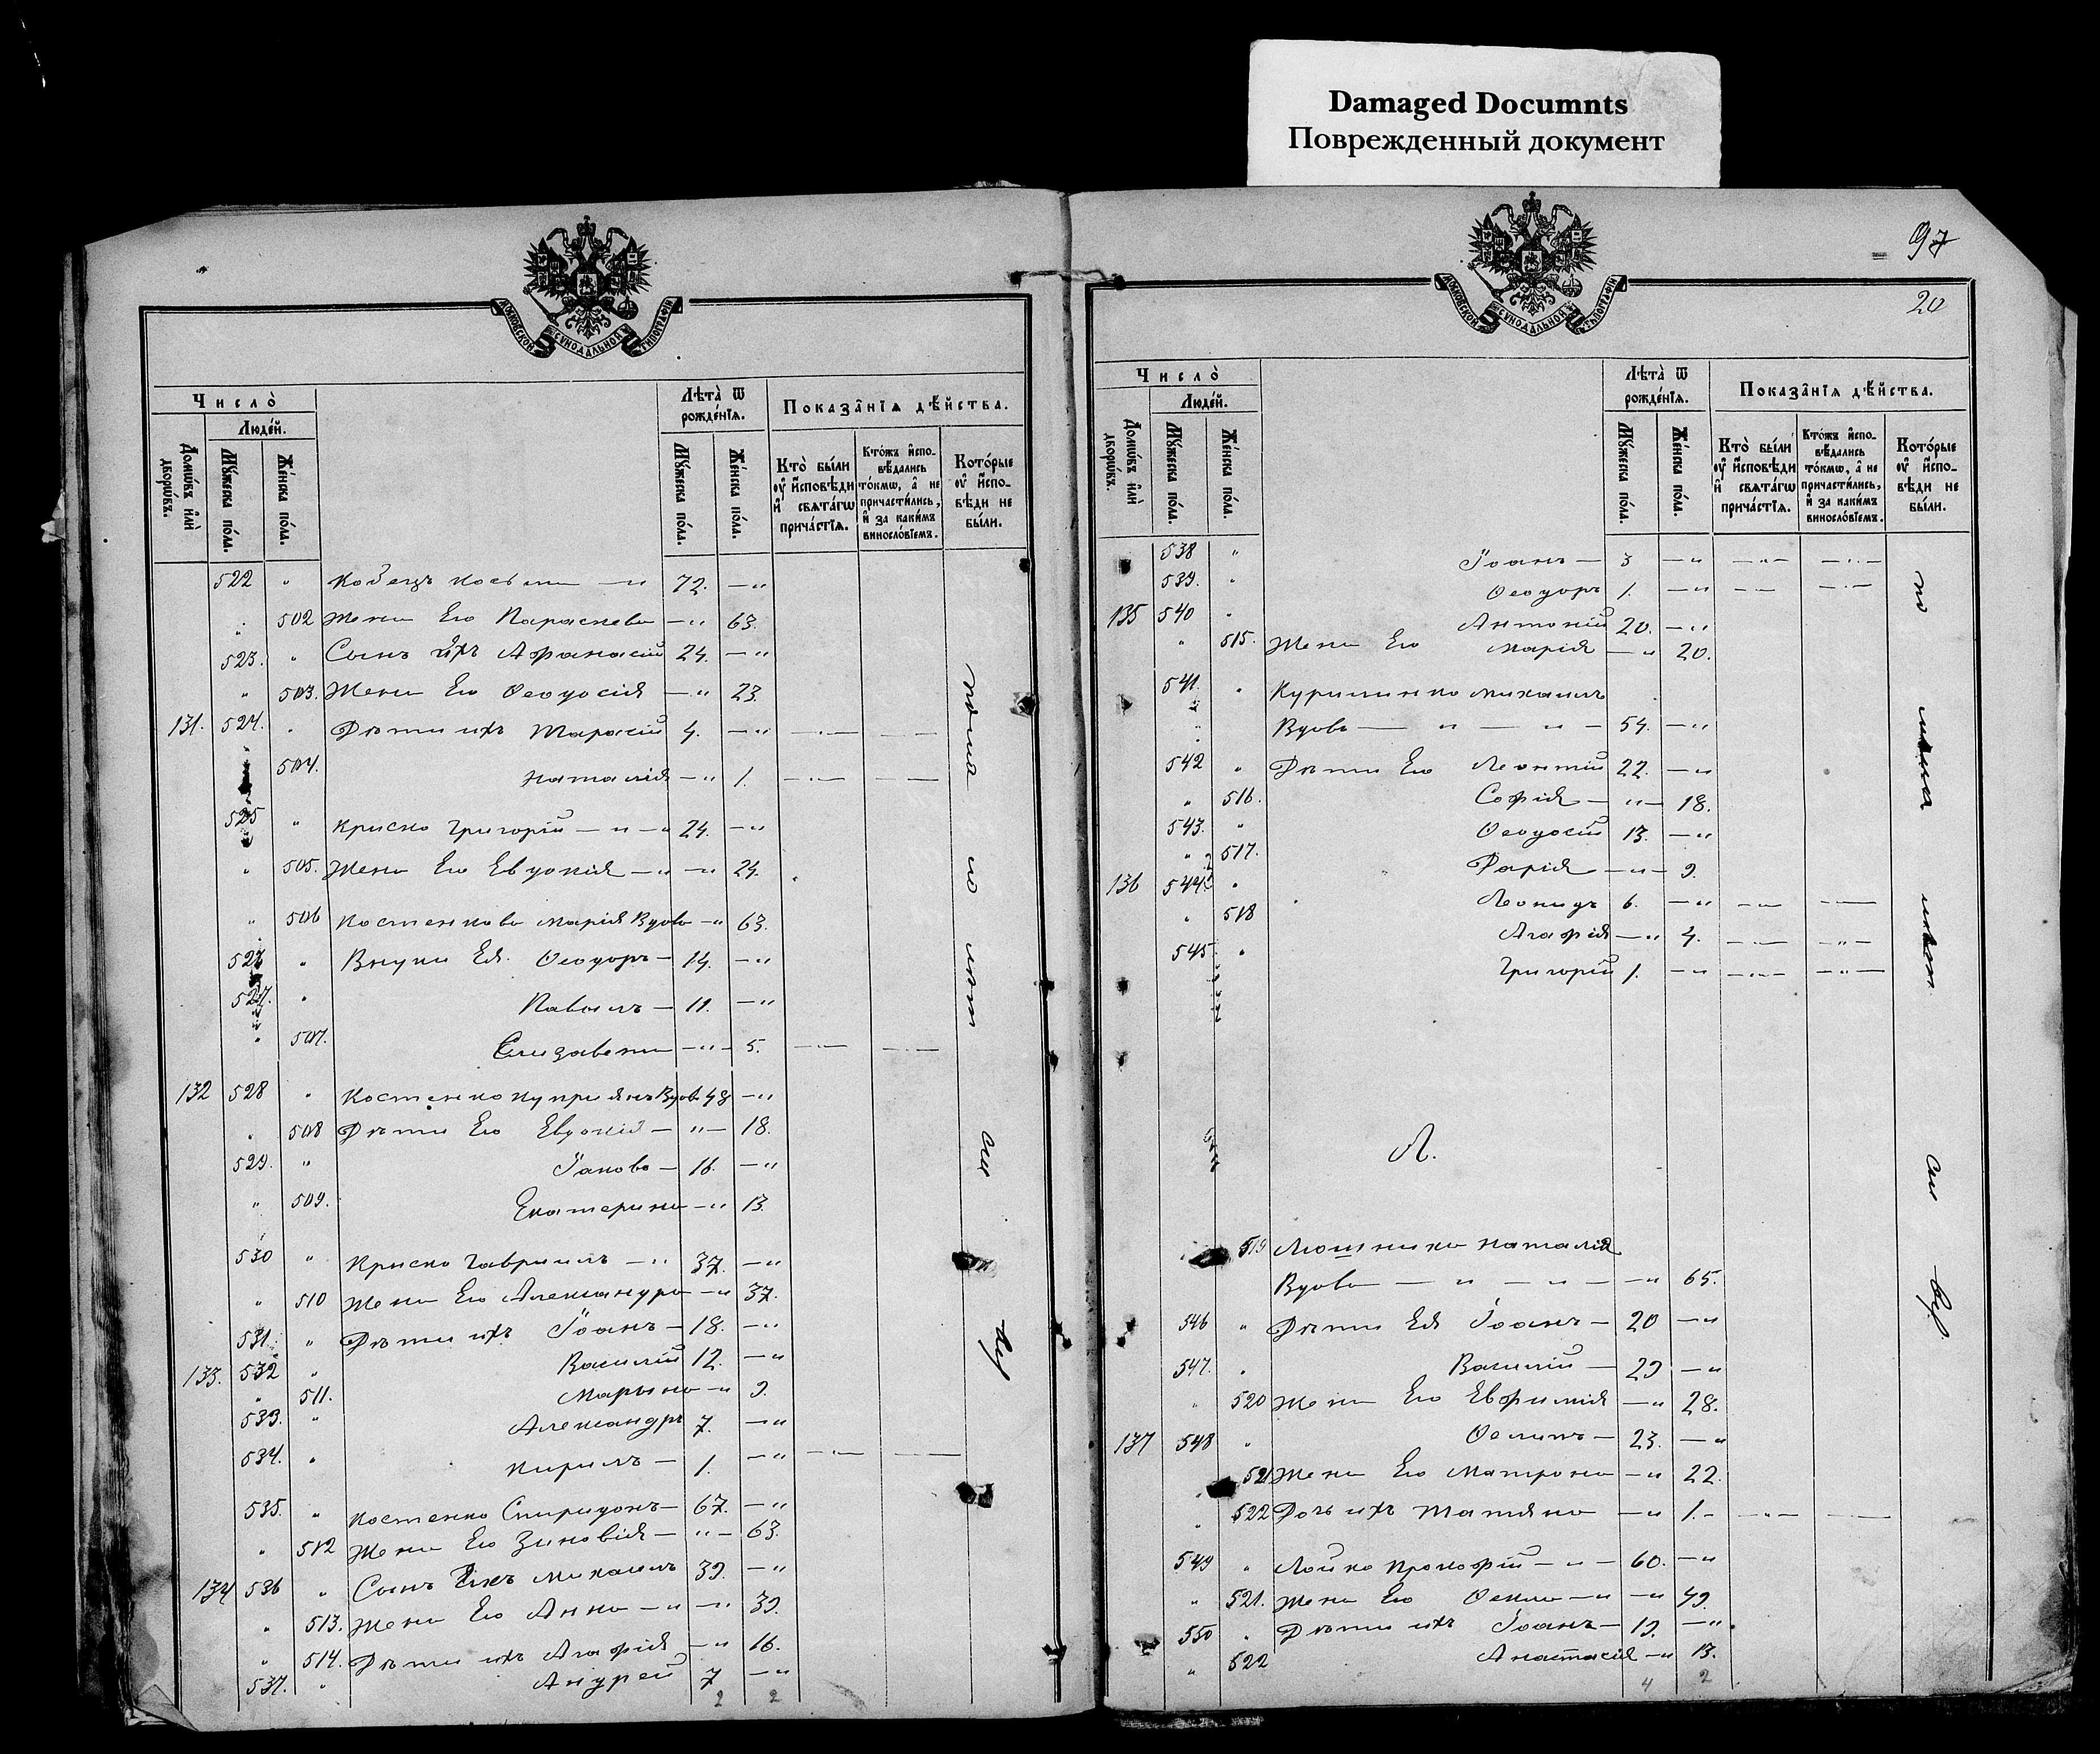 Damaged Documnts
Поврежденный документ
МОСКОВСКОЙ СѴНОДАЛЬНОЙ ТѴПОГРАФІИ
Число̀
Людéй.
Домѡ́въ и҆лѝ дворѡ́въ.
Мꙋ́жеска по́ла.
Же́нска по́ла.
Лѣта̀ ѿ рожде́нїѧ.
Мꙋ́жеска по́ла.
Же́нска по́ла.
Показа̑нїѧ дѣ́йства.
Кто̀ бы́ли оу҆ и҆сповѣди и҆ свѧта́гѡ прича́стїѧ.
Кто́жъ и҆спо-вѣдались то́кмѡ, а҆ не причасти́лись, и҆ за каки́мъ винослóвїемъ.
Кото́рые оу҆ и҆спо-вѣди не бы́ли.
522 " Кобецъ Косьма — " 72. — "
" 502 Жена Его Параскева — " 63.
523. " Сынъ ихъ Афанасій 24. — "
" 503. Жена Его Ѳеодосія — " 23.
131. 524. " Дѣти ихъ Тарасій 4. — "
504. Наталія — " 1.
525 " Криско Григорій — " — " 24. — "
" 505. Жена Его Евдокія — " — " 24.
" 506 Костенкова Марія Вдова — " 63.
" Внуки Ея Ѳеодоръ — 14. — "
527. " Павелъ — 11. — "
" 507. Елизавета — " — 5.
132 528 " Костенко Купріянъ Вдовъ 48 — "
" 508 Дѣти Его Евдокія — " — 18.
529. " Іаковъ — 16. — "
" 509. Екатерина — " 13.
530 " Криско Гавріилъ — " 37. — "
" 510 Жена Его Александра — " 37.
531. " Дѣти ихъ Іоанъ — 18. — "
133. 532 " Василій 12. — "
" 511. Марына — " 9.
533. " Александръ 7. — "
534. " Кирилъ — 1. — "
535. " Костенко Спиридонъ — 67. — "
" 512 Жена Его Зиновія — " — 63.
134 536 " Сынъ Ихъ Михаилъ 39. — "
" 513. Жена Его Анна — " — " 39.
" 514. Дѣти ихъ Агафія — " 16.
537. " Андрей 7 — "
2 2
97
20
Число̀
Людéй.
Домѡ́въ и҆лѝ дворѡ́въ.
Мꙋ́жеска по́ла.
Же́нска по́ла.
Лѣта̀ ѿ рожде́нїѧ.
Мꙋ́жеска по́ла.
Же́нска по́ла.
Показа̑нїѧ дѣ́йства.
Кто̀ бы́ли оу҆ и҆сповѣди и҆ свѧта́гѡ прича́стїѧ.
Кто́жъ и҆спо-вѣдались то́кмѡ, а҆ не причасти́лись, и҆ за каки́мъ винослóвїемъ.
Кото́рые оу҆ и҆спо-вѣди не бы́ли.
МОСКОВСКОЙ СѴНОДАЛЬНОЙ ТѴПОГРАФІИ
538 " Іоанъ — 3 — "
539. " Ѳеодоръ 1. — "
135 540 " Антоній 20. — "
" 515. Жена Его Марія — " 20.
541. " Куриленко Михаилъ
Вдовъ — " — " — 54. — "
542 " Дѣти Его Леонтій 22. — "
" 516. Софія — " — 18.
543. " Ѳеодосій 13. — "
" 517. Дарія — " — 9.
136 544 " Леонидъ 6. — "
" 518 Агафія — " 4.
545 " Григорій 1. — "
Л.
519 Люшника Наталія
Вдова — " — " — " 65.
546 " Дѣти Ея Іоанъ — 20 — "
547. " Василій — 29 — "
" 520 Жена Его Евфимія — " 28.
137 548 " 23. — "
521 Жена Его Матрона — " 22.
" 522 Дочь ихъ Татіяна — " 1.
549 " Лойко Прокофій — " — 60. — "
" 521. Жена Его Ѳекла — " — " 49.
550 " Дѣти ихъ Іоанъ — 19. — "
" 522 Анастасія — " 13.
4 2